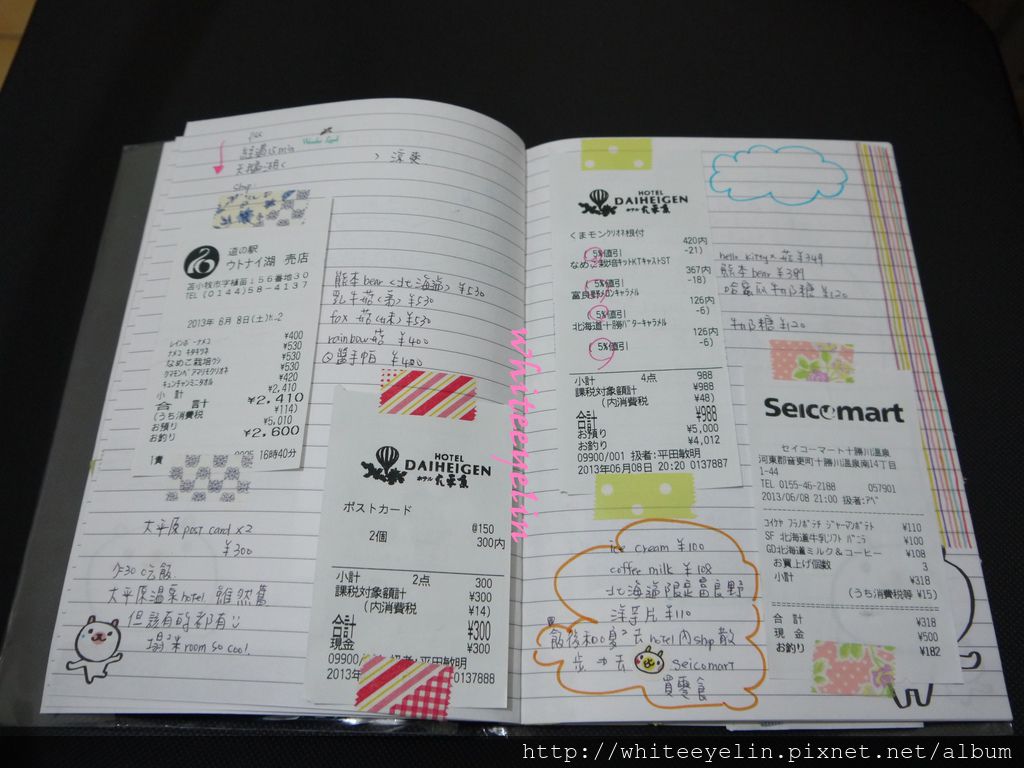 經過15min
天鵝湖
涼爽
shop:
道の駅
ウトナイ湖 売店
苫小牧市字植苗156番地30
TEL(0144)58-4137
2013年 6月 8日(土)
レインボーナメコ ¥400
ナメコ キタキツネ ¥530
なめこ栽培ウシ ¥530
クマモンベアアマリモクリオネ ¥530
キュンチャンミニタオル ¥420
小 計 ¥2,410
合 計 ¥2,410
(うち消費税 ¥114)
お預り ¥5,010
お釣り ¥2,600
16時40分
熊本bear<北海道> ¥530
乳牛菇(弟) ¥530
fox 菇(妹) ¥530
rainbow菇 ¥400
Q醬手帕 ¥420
HOTEL
DAIHEIGEN
ホテル 大平原
ポストカード
@150
2個 300内
小計 2点 300
課税対象額計 ¥300
(内消費税 ¥14)
合計 ¥300
現金 ¥300
09900/ 扱者:平田敏明
2013年 0137888
大平原 post card x2
¥300
吃飯
大平原溫泉hotel. 雖然舊
但該有的都有
塌塌米room so cool!
whiteeyelin
HOTEL
DAIHEIGEN
ホテル 大平原
くまモンクリオネ根付 420内
5%値引 -21)
なめこ栽培キットKTキャストST 367内
5%値引 -18)
富良野メロンキャラメル 126内
5%値引 -6)
北海道十勝バターキャラメル 126内
5%値引 -6)
小計 4点 988
課税対象額計 ¥988
(内消費税 ¥48)
合計 ¥988
お預り ¥5,000
お釣り ¥4,012
09900/001 扱者:平田敏明
2013年06月08日 20:20 0137887
hello kitty×菇 ¥349
熊本bear ¥399
哈密瓜牛奶糖 ¥120
牛奶糖 ¥120
Seicomart
セイコーマート十勝川温泉
河東郡音更町十勝川温泉南14丁目
1-44
TEL 0155-46-2188 057901
2013/06/08 21:00 扱者:ｱﾍﾞ
コイケヤ フラノポテチ ジャーマンポテト ¥110
SF 北海道牛乳ソフト バニラ ¥100
GD北海道ミルク&コーヒー ¥108
お買上げ個数 3
小計 ¥318
(うち消費税等 ¥15)
合 計 ¥318
現 金 ¥500
お釣り ¥182
ice cream ¥100
coffee milk ¥108
北海道限定富良野
洋芋片 ¥110
飯後和 去hotel內shop散
步 去 seicomart
買零食
http://whiteeyelin.pixnet.net/album